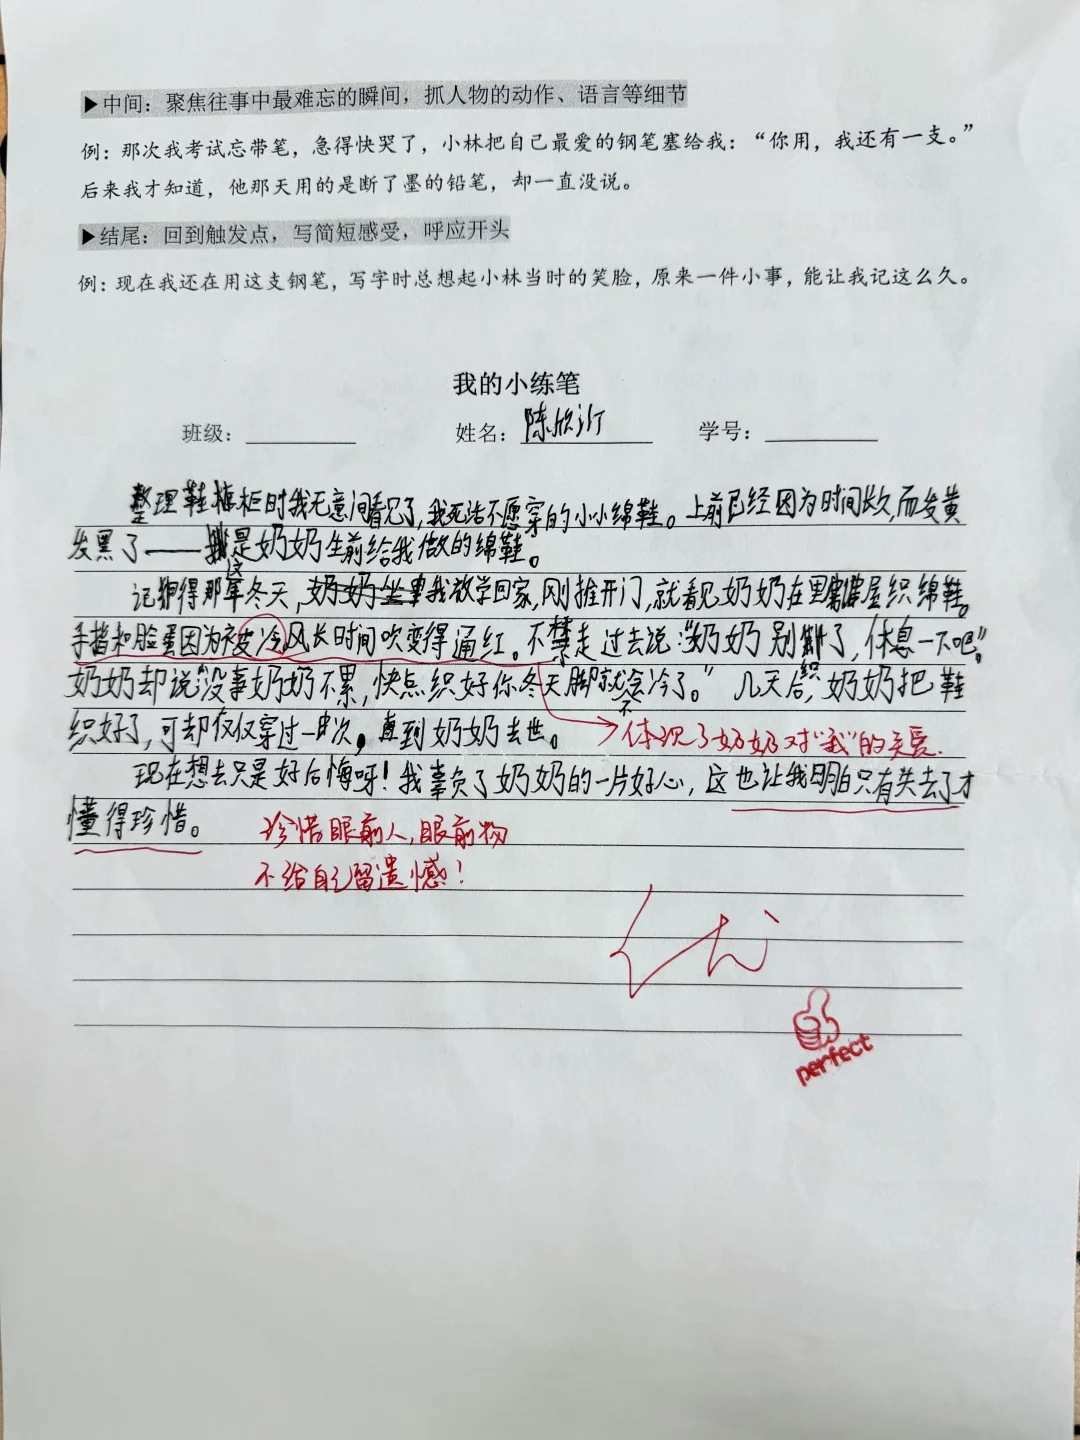 ▶中间：聚焦往事中最难忘的瞬间，抓人物的动作、语言等细节
例：那次我考试忘带笔，急得快哭了，小林把自己最爱的钢笔塞给我：“你用，我还有一支。”
后来我才知道，他那天用的是断了墨的铅笔，却一直没说。
▶结尾：回到触发点，写简短感受，呼应开头
例：现在我还在用这支钢笔，写字时总想起小林当时的笑脸，原来一件小事，能让我记这么久。
我的小练笔
班级： 姓名：陈欣汀 学号：
整理鞋柜时我无意间看见了，我死活不愿穿的小小绵鞋。上前已经因为时间长久，而发黄
发黑了——这是奶奶生前给我做的绵鞋。
记得那年冬天，我放学回家，刚推开门，就看见奶奶在里屋织绵鞋。
手指和脸蛋因为被冷风长时间吹变得通红。不禁走过去说：“奶奶别织了，休息一下吧。”
奶奶却说“没事奶奶不累，快点织好你冬天脚就不会冷了。” 几天后，奶奶把鞋
织好了，可却仅仅穿过一次。直到奶奶去世。
体现了奶奶对“我”的关爱.
现在想去只是好后悔呀！我辜负了奶奶的一片好心，这也让我明白只有失去了才
懂得珍惜。
珍惜眼前人，眼前物
不给自己留遗憾！
优
perfect